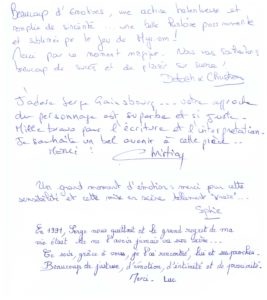 Beaucoup d'émotions, une actrice talentueuse et
remplie de sincérité ... une belle histoire passionnante
et sublimée par le jeu de Myriam !
Merci pour ce moment magique. Nous vous souhaitons
beaucoup de succès et de plaisir sur scène !
Deborah & Christiane
J'adore Serge Gainsbourg .... votre approche
du personnage est superbe et si juste.
Mille bravos pour l'écriture et l'interprétation.
Je souhaite un bel avenir à cette pièce...
Merci ! Christian
Un grand moment d'émotion : merci pour cette
sensibilité et cette mise en scène tellement "vraie"...
Sophie
En 1991, Serge nous quittait et le grand regret de ma
vie était de ne l'avoir jamais vu sur scène...
Ce soir, grâce à vous, je l'ai rencontré, lui et ses proches.
Beaucoup de justesse, d'émotion, d'intimité et de proximité.
Merci. Luc